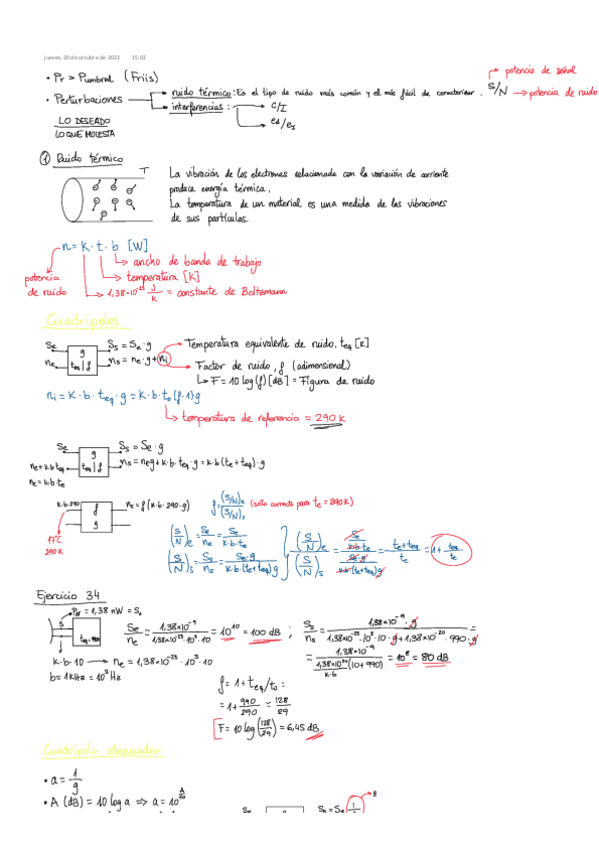 jueves, 20 de octubre de 2022 15:03
• Pr > Pumbral (Friis)
• Perturbaciones → ruido térmico: Es el tipo de ruido más común y el más fácil de caracterizar. S/N → potencia de señal
→ potencia de ruido
→ interferencias: → C/I
→ ed/eI
LO DESEADO
LO QUE MOLESTA
① Ruido térmico
T
La vibración de los electrones relacionada con la variación de corriente
produce energía térmica.
La temperatura de un material es una medida de las vibraciones
de sus partículas.
n = K · t · b [W]
→ ancho de banda de trabajo
→ temperatura [K]
→ 1,38×10⁻²³ J/K = constante de Boltzmann
potencia
de ruido
Cuadripolos
Se
ne
g
teq | f
Ss = Se · g
ns = ne · g + ni
→ Temperatura equivalente de ruido, teq [K]
→ Factor de ruido, f (adimensional)
↳ F = 10 log(f) [dB] = Figura de ruido
ni = K · b · teq · g = K · b · to (f-1) g
↳ temperatura de referencia = 290 K
Se
ne + k·b·teq
ne = k·b·te
g
teq | f
Ss = Se · g
ns = ne g + k·b·teq · g = k·b (te + teq) · g
k·b·290
17°C
290 K
f
g
ns = f (k·b·290·g)
f = (S/N)e / (S/N)s (sólo correcto para te = 290 K)
(S/N)e = Se/ne = Se/(k·b·te)
(S/N)s = Ss/ns = Se·g/(k·b·(te+teq)g)
(S/N)e / (S/N)s = (Se/(k·b·te)) / (Se·g/(k·b·(te+teq)g)) = (te+teq)/te = 1 + teq/te
Ejercicio 34
Pr = 1,38 nW = Se
teq = 990
Se/ne = 1,38×10⁻⁹ / (1,38×10⁻²³ · 10³ · 10) = 10¹⁰ = 100 dB ;
Ss/ns = 1,38×10⁻⁹ · g / (1,38×10⁻²³ · 10³ · 10 · g + 1,38×10⁻²⁰ · 990 · g) =
= 1,38×10⁻⁹ / (1,38×10⁻²⁰ (10 + 990)) = 10⁸ = 80 dB
k·b
k · b · 10 → ne = 1,38×10⁻²³ · 10³ · 10
b = 1 kHz = 10³ Hz
f = 1 + teq/to =
= 1 + 990/290 = 128/29
F = 10 log(128/29) = 6,45 dB
Cuadripolo atenuador
• a = 1/g
• A (dB) = 10 log a ⇒ a = 10^(A/10)
Ss = Se